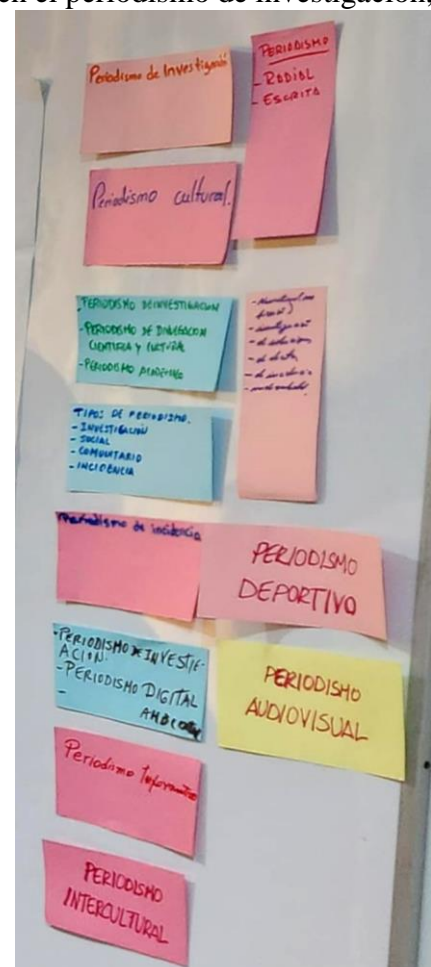 en el periodismo de investigación,
Periodismo de Investigación
PERIODISMO
- RADIAL
- ESCRITO
Periodismo cultural.
- PERIODISMO DE INVESTIGACION
- PERIODISMO DE DIVULGACION
CIENTIFICA Y CULTURAL
- PERIODISMO ACADÉMICO
TIPOS DE PERIODISMO.
- INVESTIGACIÓN
- SOCIAL
- COMUNITARIO
- INCIDENCIA
Periodismo de incidencia
PERIODISMO
DEPORTIVO
- PERIODISMO DE INVESTIG-
ACIÓN.
- PERIODISMO DIGITAL
-
PERIODISMO
AUDIOVISUAL
Periodismo Informativo
PERIODISMO
INTERCULTURAL